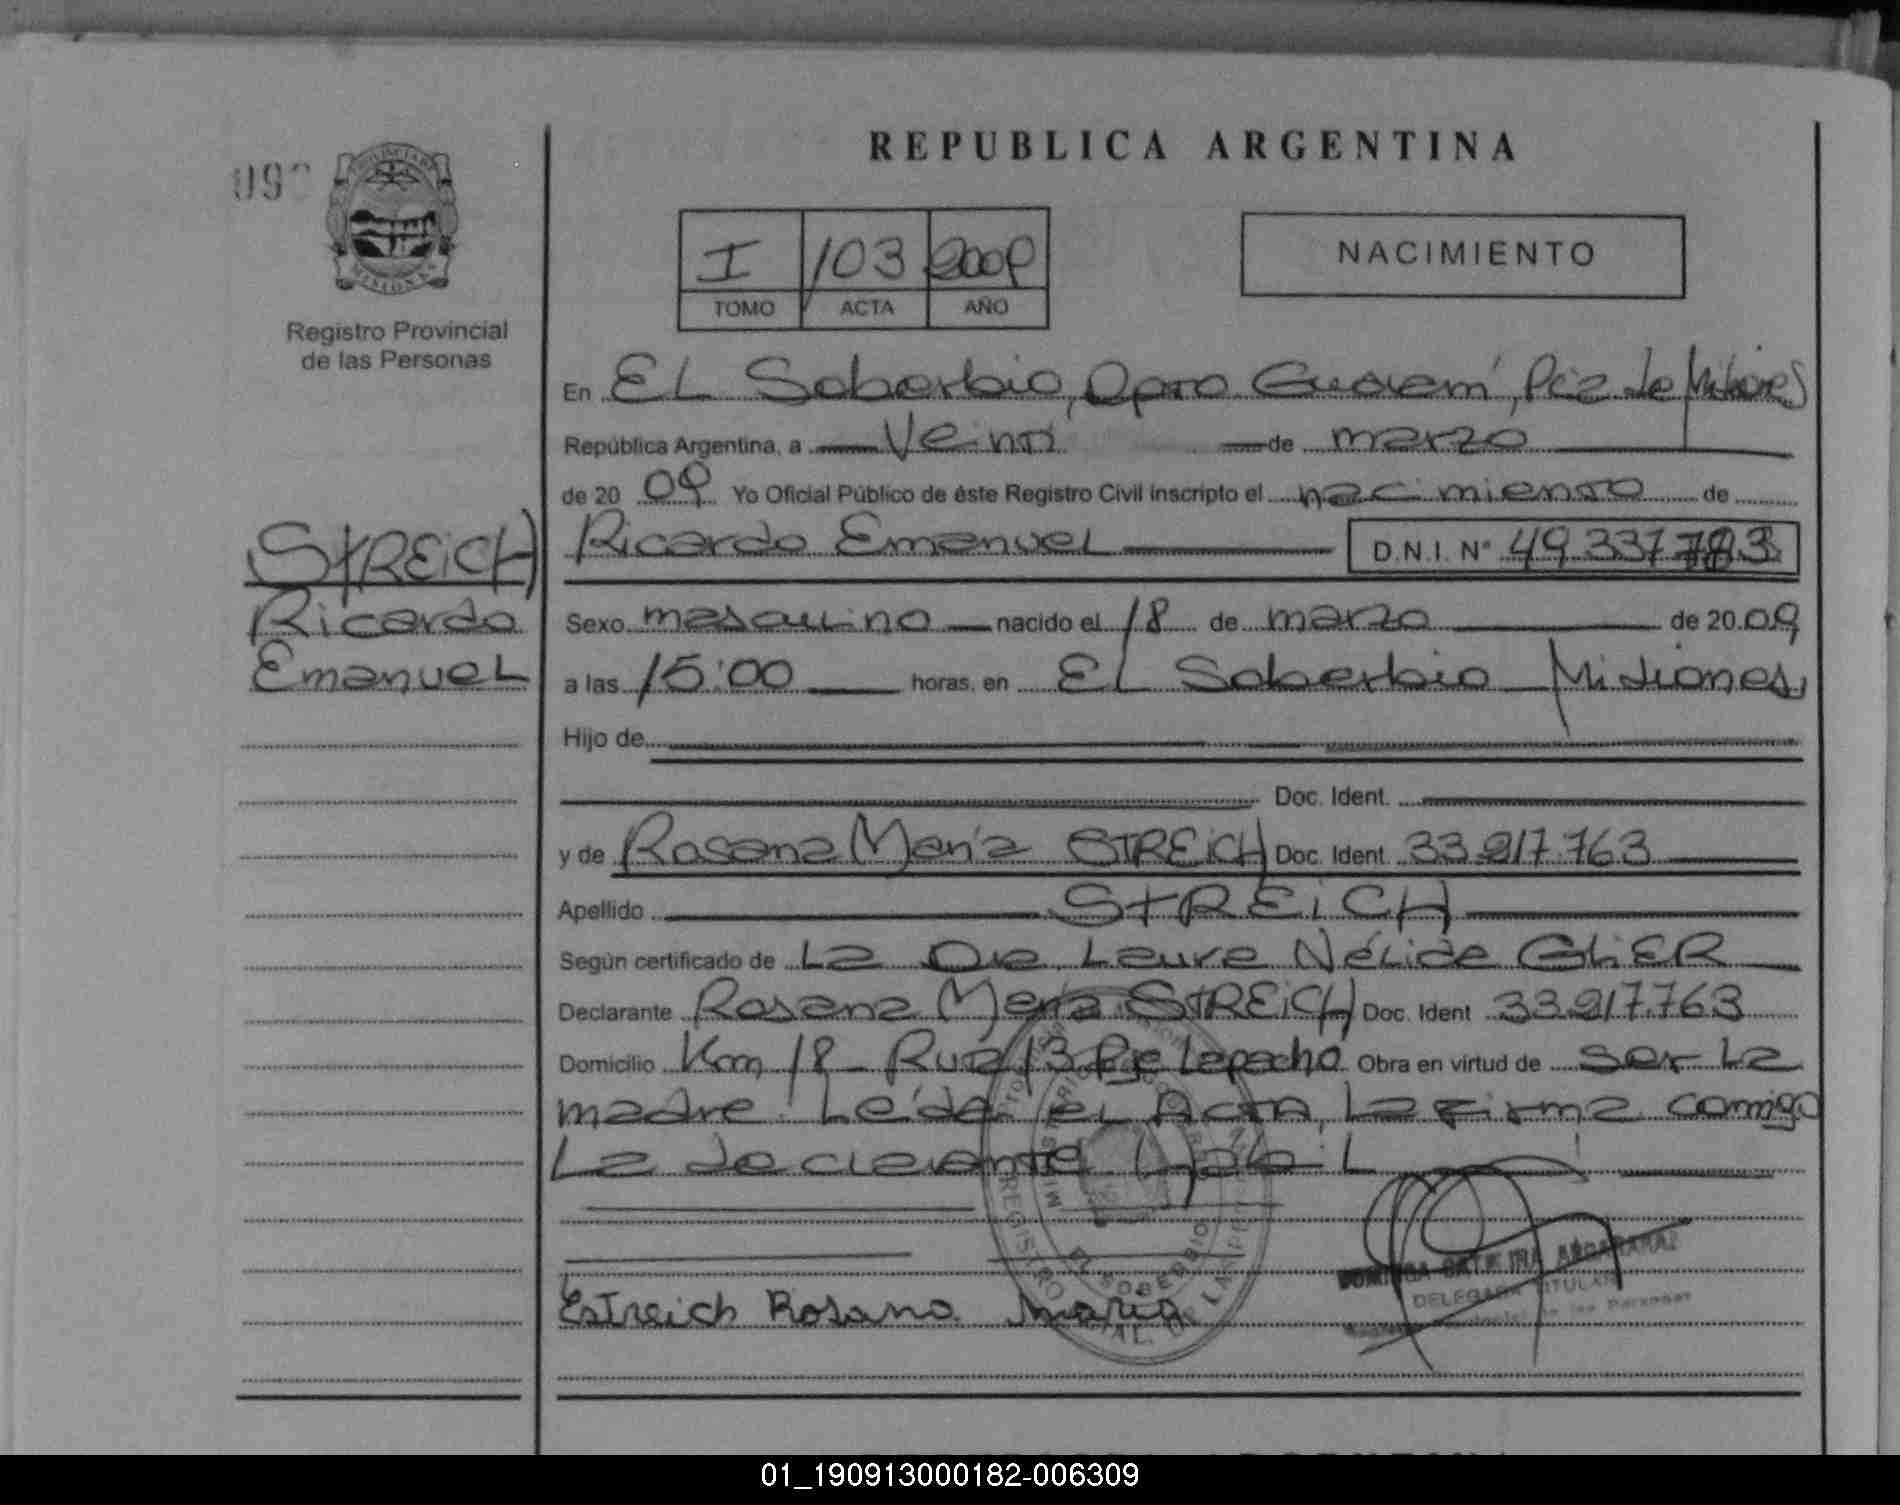 REPUBLICA ARGENTINA
09
MISIONES
Registro Provincial
de las Personas
I 103 2009
TOMO ACTA AÑO
NACIMIENTO
En EL Soberbio, Dpto Guaraní, Pcia de Misiones
República Argentina, a Veinti de marzo
de 20 09 Yo Oficial Público de éste Registro Civil inscripto el nacimiento de
STREICH
Ricardo Emanuel D.N.I. Nº 49.337.783
Ricardo
Emanuel
Sexo masculino nacido el 18 de marzo de 20 09
a las 15:00 horas, en EL Soberbio Misiones
Hijo de
Doc. Ident.
y de Rosana María STREICH Doc. Ident 33.217.763
Apellido STREICH
Según certificado de La Dra Laura Nélida GLIER
Declarante Rosana María STREICH Doc. Ident 33.217.763
Domicilio Km 18 - Ruta 13 Pje Lapacho Obra en virtud de ser La
madre. Leída el Acta, La firma conmigo
La declarante Hábil
EL SOBERBIO
Estreich Rosana maria
DELEGADA TITULAR
de las Personas
01_190913000182-006309